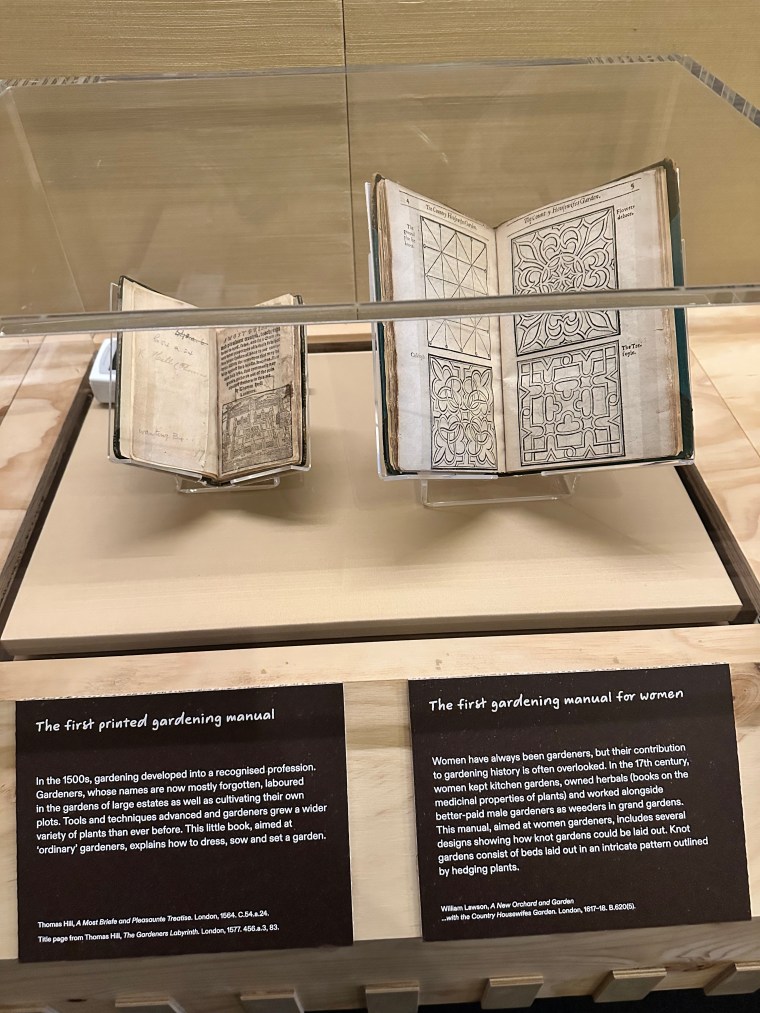 4
The Country Housewifes Garden.
5
Cinkfoyle
Flower-
deluce.
The Tre-
foyle.
The first printed gardening manual
In the 1500s, gardening developed into a recognised profession.
Gardeners, whose names are now mostly forgotten, laboured
in the gardens of large estates as well as cultivating their own
plots. Tools and techniques advanced and gardeners grew a wider
variety of plants than ever before. This little book, aimed at
‘ordinary’ gardeners, explains how to dress, sow and set a garden.
Thomas Hill, A Most Briefe and Pleasaunte Treatise. London, 1564. C.54.a.24.
Title page from Thomas Hill, The Gardeners Labyrinth. London, 1577. 456.a.3, 83.
The first gardening manual for women
Women have always been gardeners, but their contribution
to gardening history is often overlooked. In the 17th century,
women kept kitchen gardens, owned herbals (books on the
medicinal properties of plants) and worked alongside
better-paid male gardeners as weeders in grand gardens.
This manual, aimed at women gardeners, includes several
designs showing how knot gardens could be laid out. Knot
gardens consist of beds laid out in an intricate pattern outlined
by hedging plants.
William Lawson, A New Orchard and Garden
...with the Country Housewifes Garden. London, 1617-18. B.620(5).